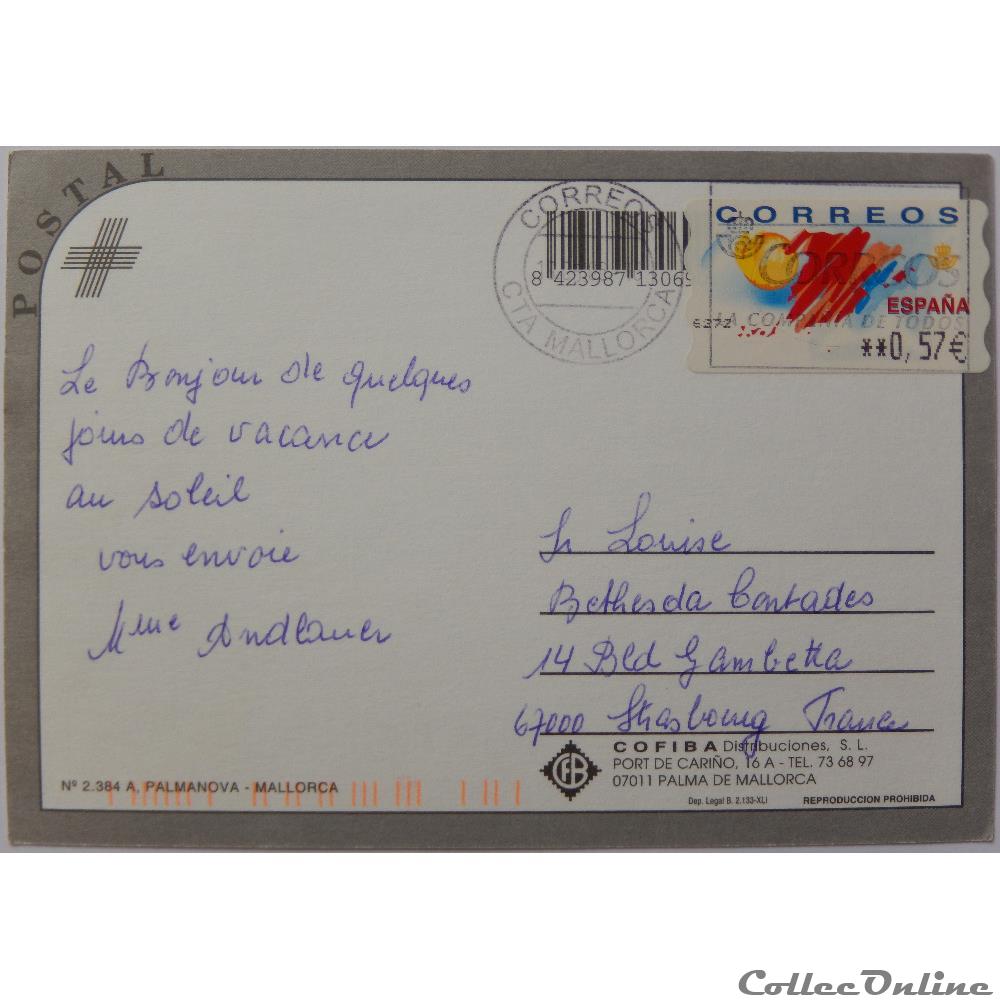 POSTAL
CORREOS
CTA MALLORCA
8 423987 13069
CORREOS
CORREOS
ESPAÑA
6272
LA COMPAÑIA DE TODOS
**0,57€
Le Bonjour de quelques
jours de vacance
au soleil
vous envoie
Mme Andlauer
Sr Louise
Bethesda Contades
14 Bld Gambetta
67000 Strasbourg France
Nº 2.384 A, PALMANOVA - MALLORCA
CFB
COFIBA Distribuciones, S. L.
PORT DE CARIÑO, 16 A - TEL. 73 68 97
07011 PALMA DE MALLORCA
Dep. Legal B. 2.133-XLI
REPRODUCCION PROHIBIDA
CollecOnline